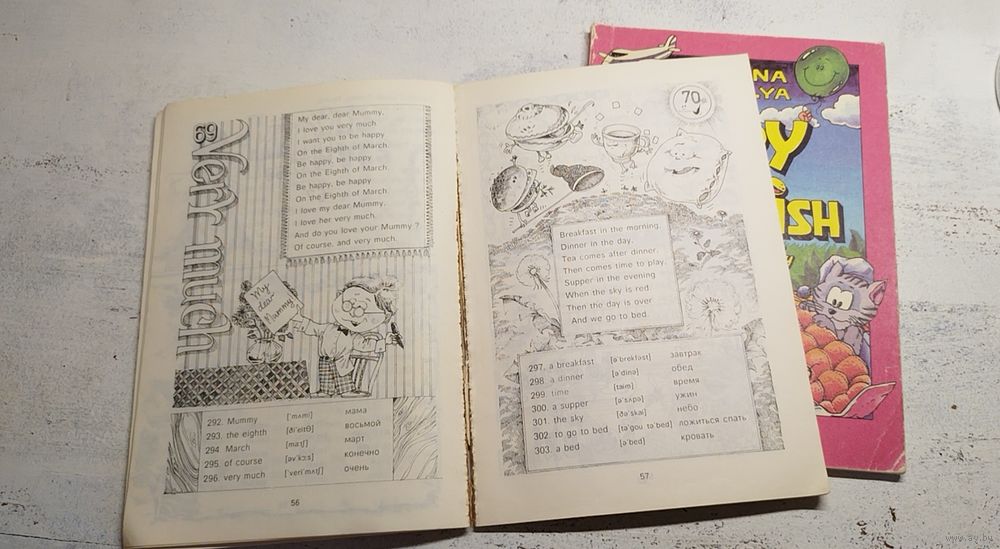 69
Very much
My dear, dear Mummy,
I love you very much
I want you to be happy
On the Eighth of March.
Be happy, be happy
On the Eighth of March.
Be happy, be happy
On the Eighth of March.
I love my dear Mummy,
I love her very much.
And do you love your Mummy ?
Of course, and very much.
My
dear
Mummy!
292. Mummy ['mʌmi] мама
293. the eighth [ði'eitθ] восьмой
294. March [ma:tʃ] март
295. of course [əv'kɔ:s] конечно
296. very much ['veri'mʌtʃ] очень
56
70
Breakfast in the morning.
Dinner in the day.
Tea comes after dinner,
Then comes time to play.
Supper in the evening
When the sky is red.
Then the day is over
And we go to bed.
297. a breakfast [ə'brekfəst] завтрак
298 a dinner [ə'dinə] обед
299. time [taim] время
300. a supper [ə'sʌpə] ужин
301. the sky [ðə'skai] небо
302. to go to bed [tə'gou tə'bed] ложиться спать
303. a bed [ə'bed] кровать
57
NA
LYA
SY
ISH
www.ay.by